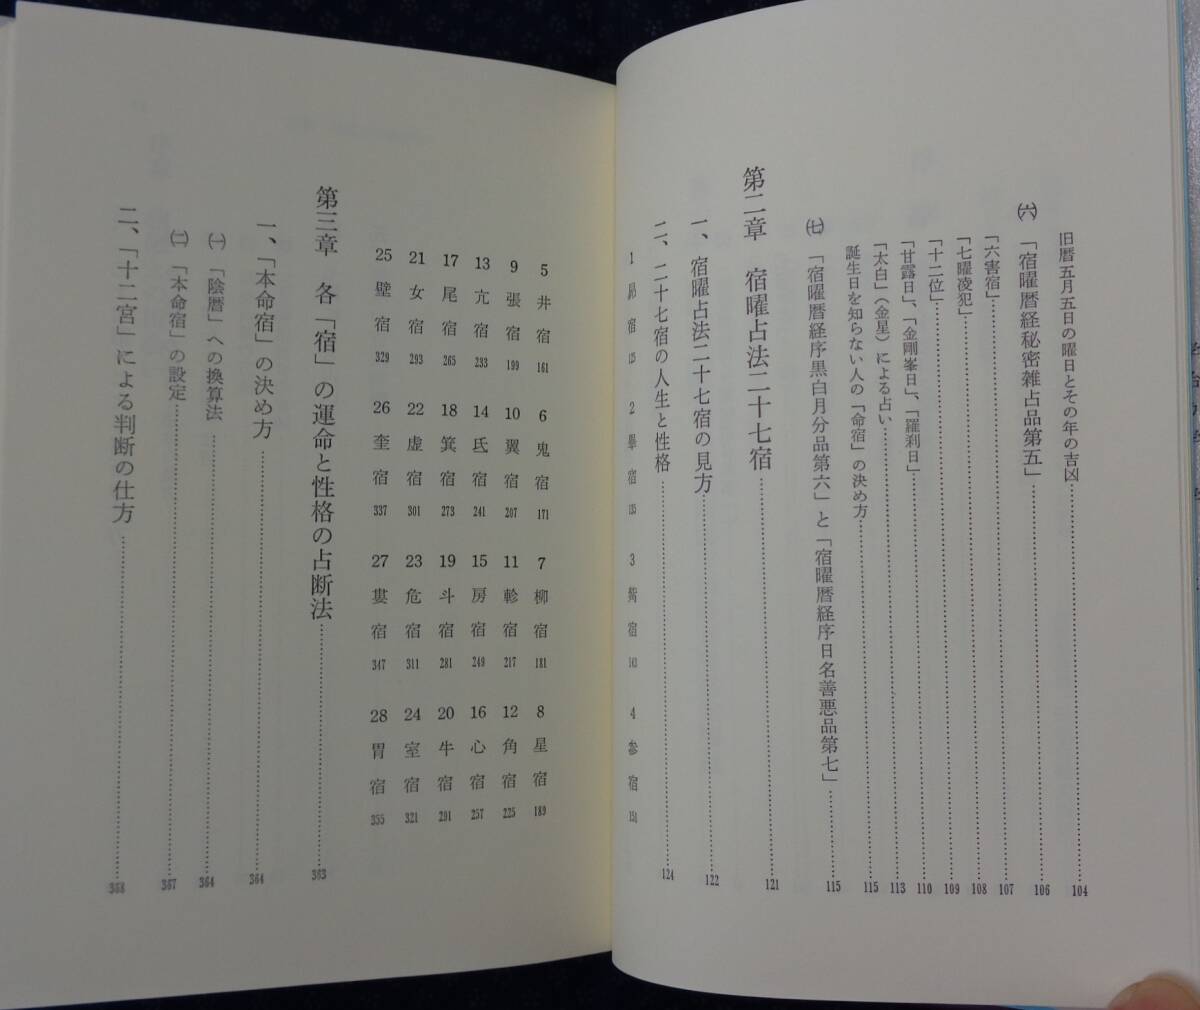 旧暦五月五日の曜日とその年の吉凶……104
㈥ 「宿曜暦経秘密雑占品第五」……106
「六害宿」……107
「七曜凌犯」……108
「十二位」……109
「甘露日」、「金剛峯日」、「羅刹日」……110
「太白」（金星）による占い……113
誕生日を知らない人の「命宿」の決め方……115
㈦ 「宿曜暦経序黒白月分品第六」と「宿曜暦経序日名善悪品第七」……115
第二章 宿曜占法二十七宿……121
一、宿曜占法二十七宿の見方……122
二、二十七宿の人生と性格……124
1 昴宿 125 2 畢宿 135 3 觜宿 143 4 参宿 151
5 井宿 161 6 鬼宿 171 7 柳宿 181 8 星宿 189
9 張宿 199 10 翼宿 207 11 軫宿 217 12 角宿 225
13 亢宿 233 14 氐宿 241 15 房宿 249 16 心宿 257
17 尾宿 265 18 箕宿 273 19 斗宿 281 20 牛宿 291
21 女宿 293 22 虚宿 301 23 危宿 311 24 室宿 321
25 壁宿 329 26 奎宿 337 27 婁宿 347 28 胃宿 355
第三章 各「宿」の運命と性格の占断法……363
一、「本命宿」の決め方……364
㈠ 「陰暦」への換算法……364
㈡ 「本命宿」の設定……367
二、「十二宮」による判断の仕方……368